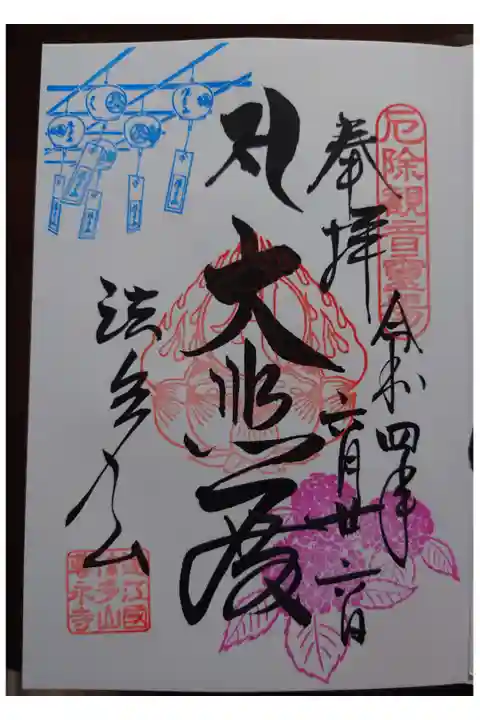 厄除觀音靈場
奉拝
令和四年
六月廿六日
大悲殿
法多山
遠江國
法多山
尊永寺